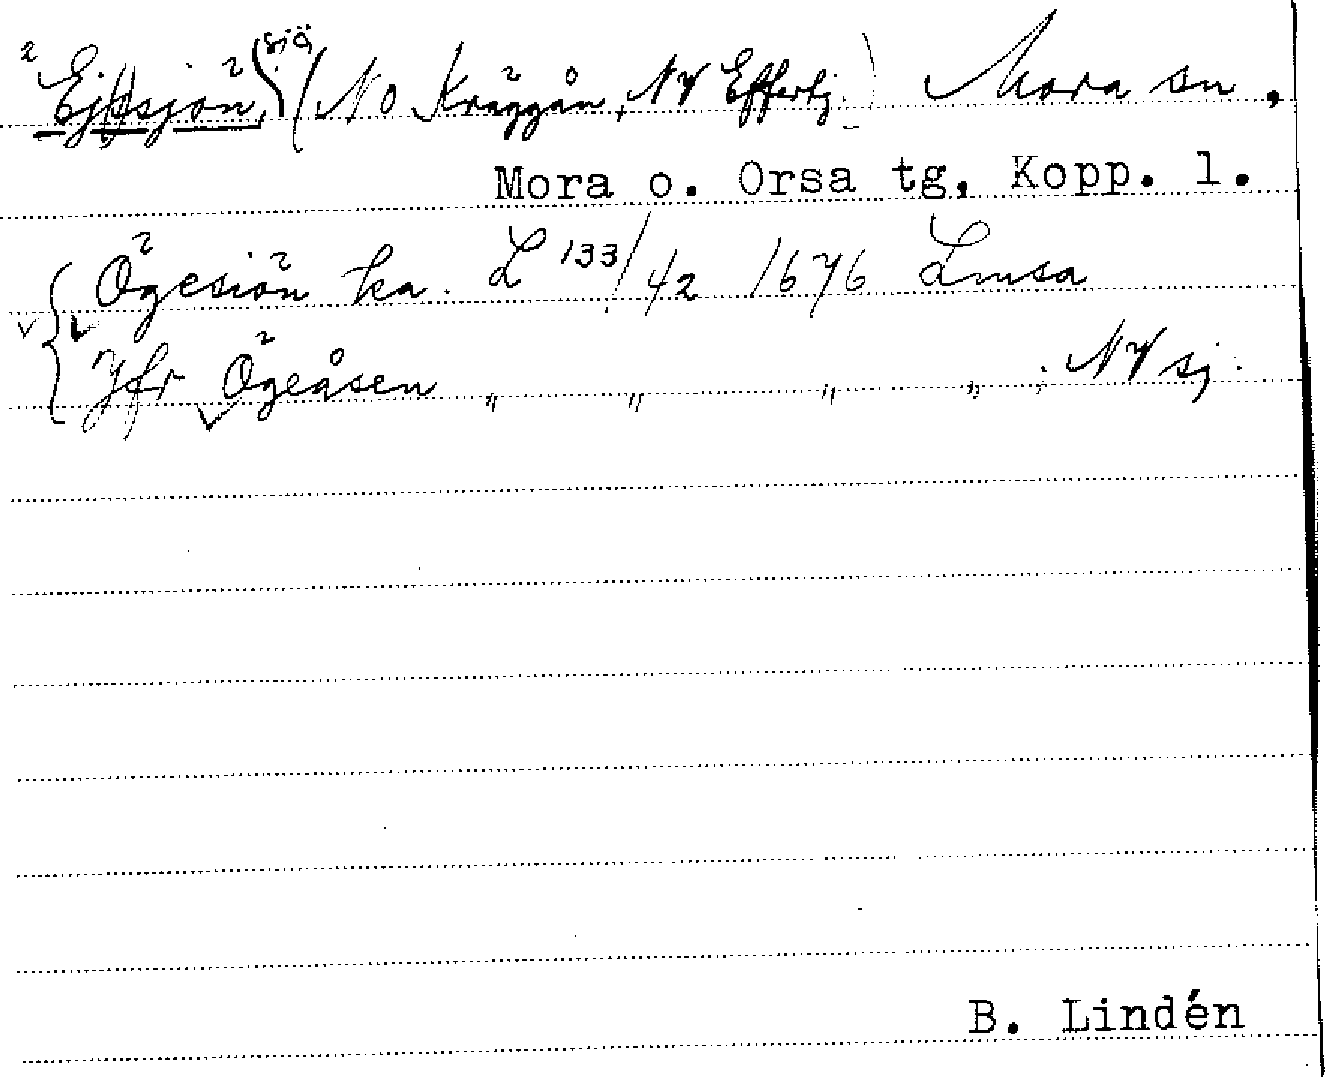 Ejsjön, sjö (NO Kräggån, NV Efferbj.) Mora sn,
Mora o. Orsa tg, Kopp. l.
Ögesiön ka. L 133/42 1676 Lmsa
Jfr Ögeåsen " " " " ; NV sj.
B. Lindén